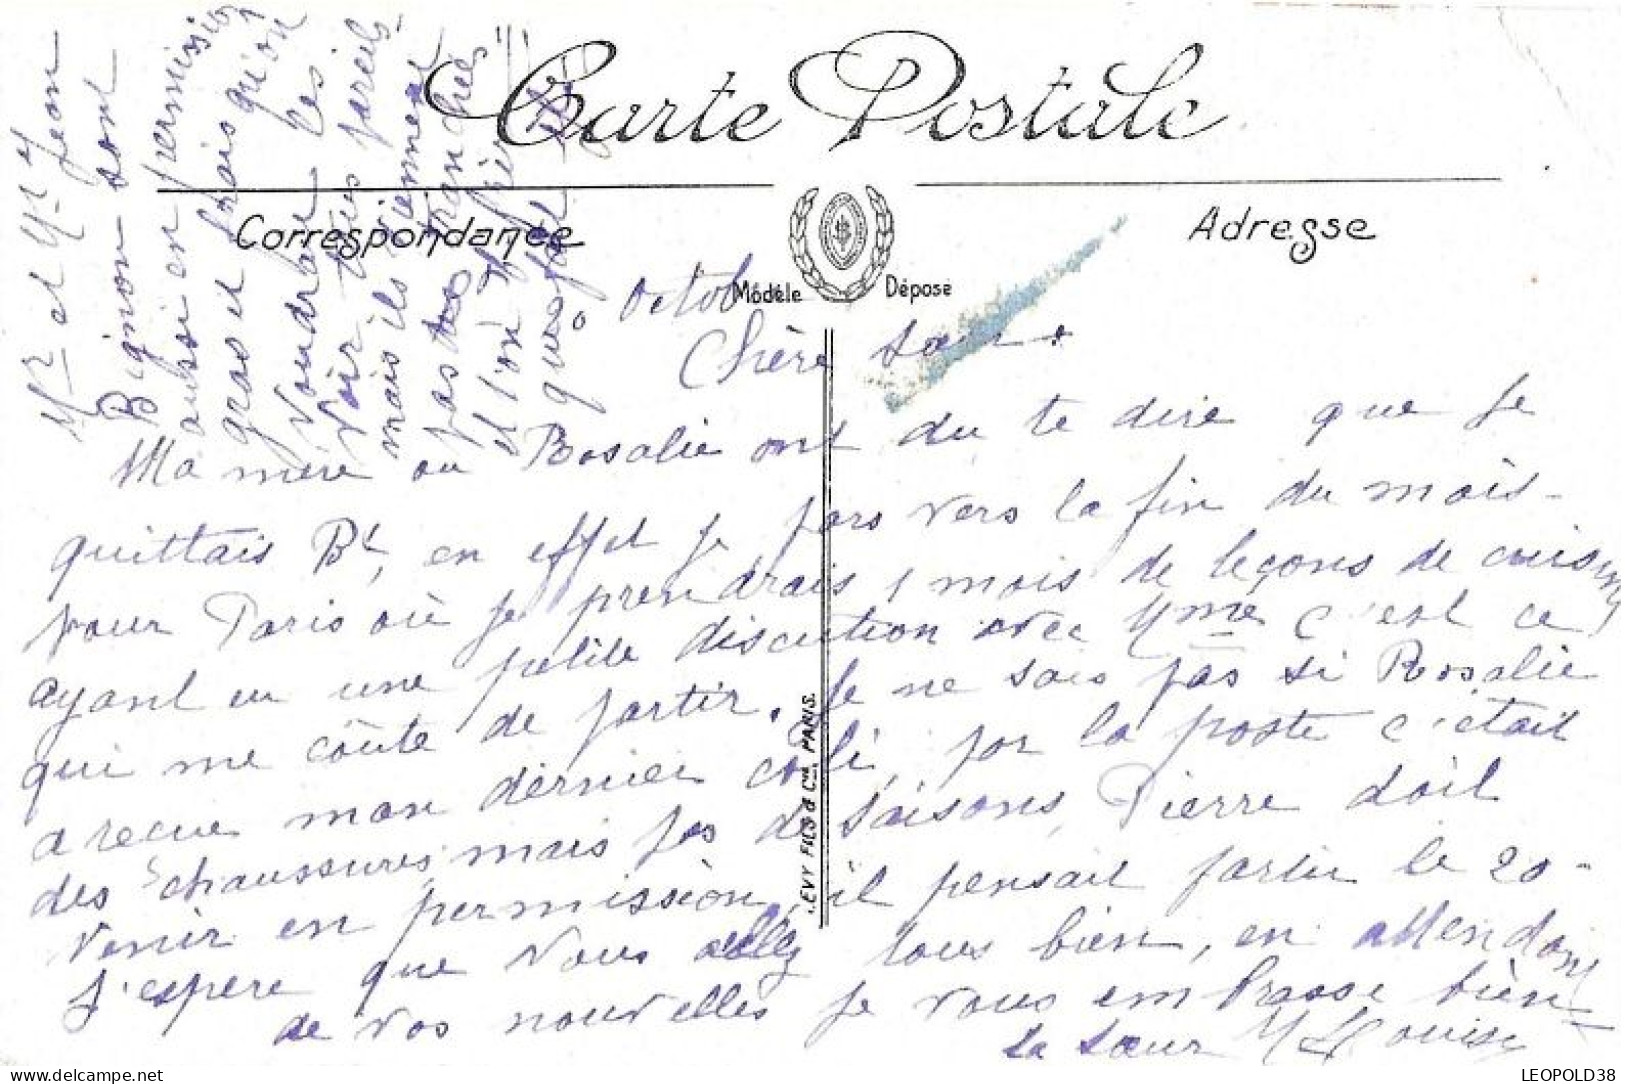 Carte Postale
Correspondance
Adresse
Modèle Déposé
Octob
Chère Sœur.
Ma mère ou Rosalie ont du te dire que je
quittais Bx, en effet je pars vers la fin du mois-
pour Paris où je prendrais 1 mois de leçons de cuisine
ayant eu une petite discution avec Mme c'est ce
qui me coûte de partir. Je ne sais pas si Rosalie
a recue mon dernier coli, par la poste c'était
des chaussures mais pas de saisons, Pierre doit
venir en permission, il pensait partir le 20-
J'espère que vous allez tous bien, en attendant
de vos nouvelles je vous embrasse bien
ta sœur M Louise
Mr et Mme Jean
Bignon sont
aussi en permission
gras et frais qu'on
voudrait les
voir tous pareils
mais ils viennent
pas des tranchées
et l'on
que
LEVY FILS & Cie PARIS.
LEOPOLD38